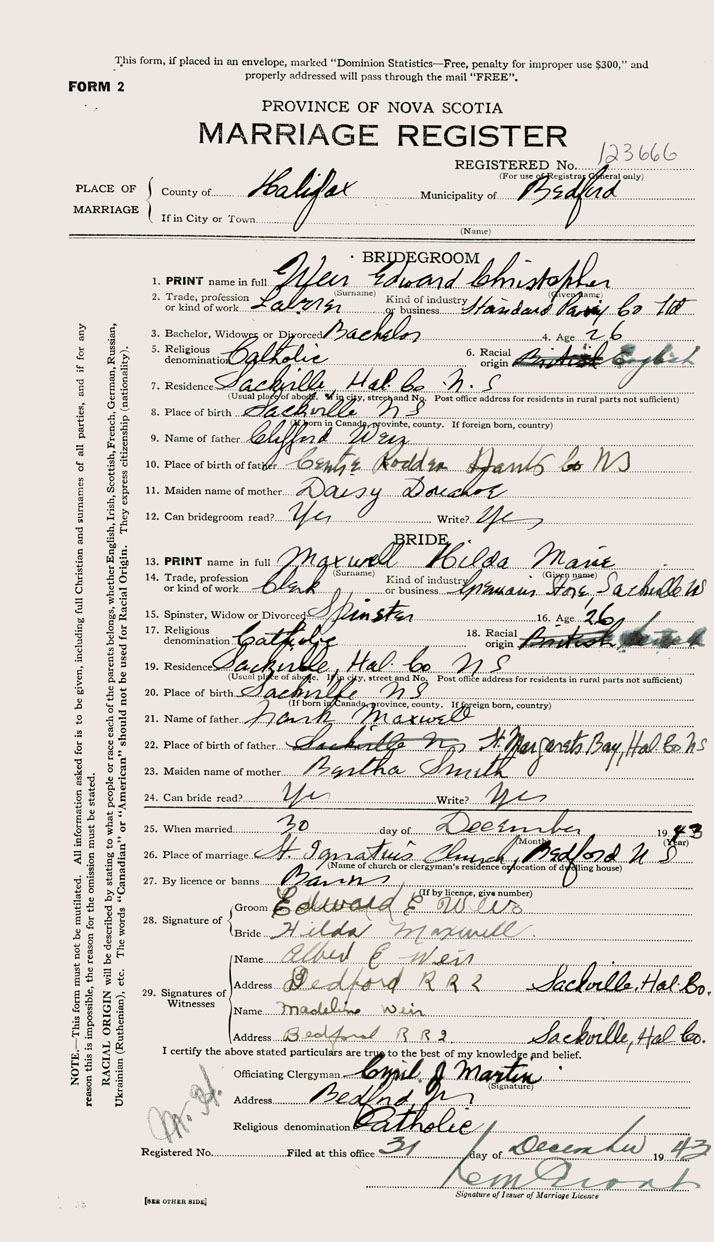 This form, if placed in an envelope, marked "Dominion Statistics—Free, penalty for improper use $300," and
properly addressed will pass through the mail "FREE".
FORM 2
PROVINCE OF NOVA SCOTIA
MARRIAGE REGISTER
REGISTERED No. 123666
(For use of Registrar General only)
PLACE OF MARRIAGE
County of Halifax Municipality of Bedford
If in City or Town
(Name)
BRIDEGROOM
1. PRINT name in full Weir Edward Christopher
(Surname) (Given name)
2. Trade, profession or kind of work Laborer Kind of industry or business Standard Paving Co Ltd
3. Bachelor, Widower or Divorced Bachelor 4. Age 26
5. Religious denomination Catholic 6. Racial origin British English
7. Residence Sackville, Hal. Co. N. S
(Usual place of abode. If in city, street and No. Post office address for residents in rural parts not sufficient)
8. Place of birth Sackville N S
(If born in Canada, province, county. If foreign born, country)
9. Name of father Clifford Weir
10. Place of father Centre Rodden Hants Co NS
11. Maiden name of mother Daisy Donahoe
12. Can bridegroom read? Yes Write? Yes
BRIDE
13. PRINT name in full Maxwell Hilda Marie
(Surname) (Given name)
14. Trade, profession or kind of work Clerk Kind of industry or business Store Sackville NS
15. Spinster, Widow or Divorced Spinster 16. Age 26
17. Religious denomination Catholic 18. Racial origin British
19. Residence Sackville, Hal. Co N S
(Usual place of abode. If in city, street and No. Post office address for residents in rural parts not sufficient)
20. Place of birth Sackville N S
(If born in Canada, province, county. If foreign born, country)
21. Name of father Frank Maxwell
22. Place of birth of father Sackville NS St. Margarets Bay, Hal. Co NS
23. Maiden name of mother Bertha Smith
24. Can bride read? Yes Write? Yes
25. When married 30 day of December 1943
(Month) (Year)
26. Place of marriage St. Ignatius Church, Bedford N S
(Name of church or clergyman's residence or location of dwelling house)
27. By licence or banns Banns
(If by licence, give number)
28. Signature of
Groom Edward C Weir
Bride Hilda Maxwell.
29. Signatures of Witnesses
Name Albert E Weir
Address Bedford R R 2 Sackville, Hal. Co.
Name Madeline Weir
Address Bedford R R 2. Sackville, Hal Co.
I certify the above stated particulars are true to the best of my knowledge and belief.
Officiating Clergyman Cyril J Martin
(Signature)
Address Bedford, NS
Religious denomination Catholic
Registered No. Filed at this office 31 day of December 1943
Signature of Issuer of Marriage Licence
[SEE OTHER SIDE]
NOTE.—This form must not be mutilated. All information asked for is to be given, including full Christian and surnames of all parties, and if for any
reason this is impossible, the reason for the omission must be stated.
RACIAL ORIGIN will be described by stating to what people or race each of the parents belongs, whether English, Irish, Scottish, French, German, Russian,
Ukrainian (Ruthenian), etc. The words "Canadian" or "American" should not be used for Racial Origin. They express citizenship (nationality).